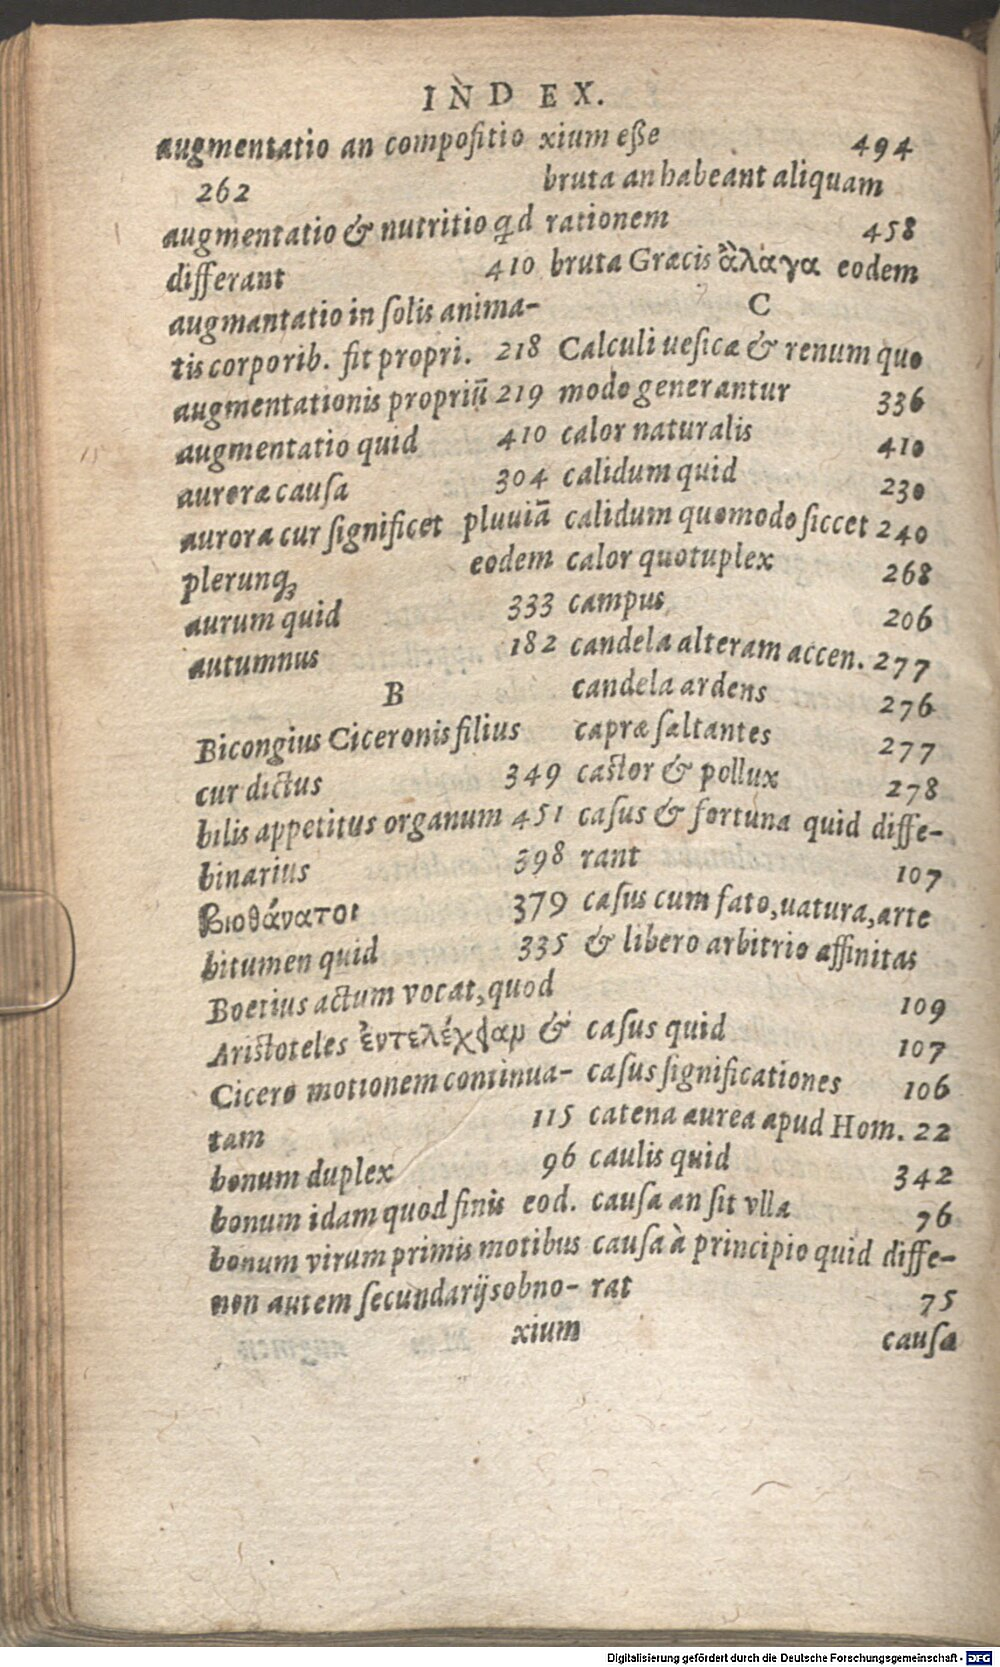 INDEX.
augmentatio an compositio
262
augmentatio & nutritio qd
differant 410
augmantatio in solis anima-
tis corporib. fit propri. 218
augmentationis propriū 219
augmentatio quid 410
auroræ causa 304
aurora cur significet pluuiā
plerunq; eodem
aurum quid 333
autumnus 182
B
Bicongius Ciceronis filius
cur dictus 349
bilis appetitus organum 451
binarius 398
Βιοθάνατοι 379
bitumen quid 335
Boetius actum vocat, quod
Aristoteles &
Cicero motionem continua-
tam 115
bonum duplex 96
bonum idam quod finis eod.
bonum virum primis motibus
non autem secundarijs obno-
xium
xium eße 494
bruta an habeant aliquam
rationem 458
bruta Græcis eodem
C
Calculi uesicæ & renum quo
modo generantur 336
calor naturalis 410
calidum quid 230
calidum quomodo siccet 240
calor quotuplex 268
campus 206
candela alteram accen. 277
candela ardens 276
capræ saltantes 277
castor & pollux 278
casus & fortuna quid diffe-
rant 107
casus cum fato, uatura, arte
& libero arbitrio affinitas
109
casus quid 107
casus significationes 106
catena aurea apud Hom. 22
caulis quid 342
causa an sit vlla 76
causa à principio quid diffe-
rat 75
causa
Digitalisierung gefördert durch die Deutsche Forschungsgemeinschaft - DFG